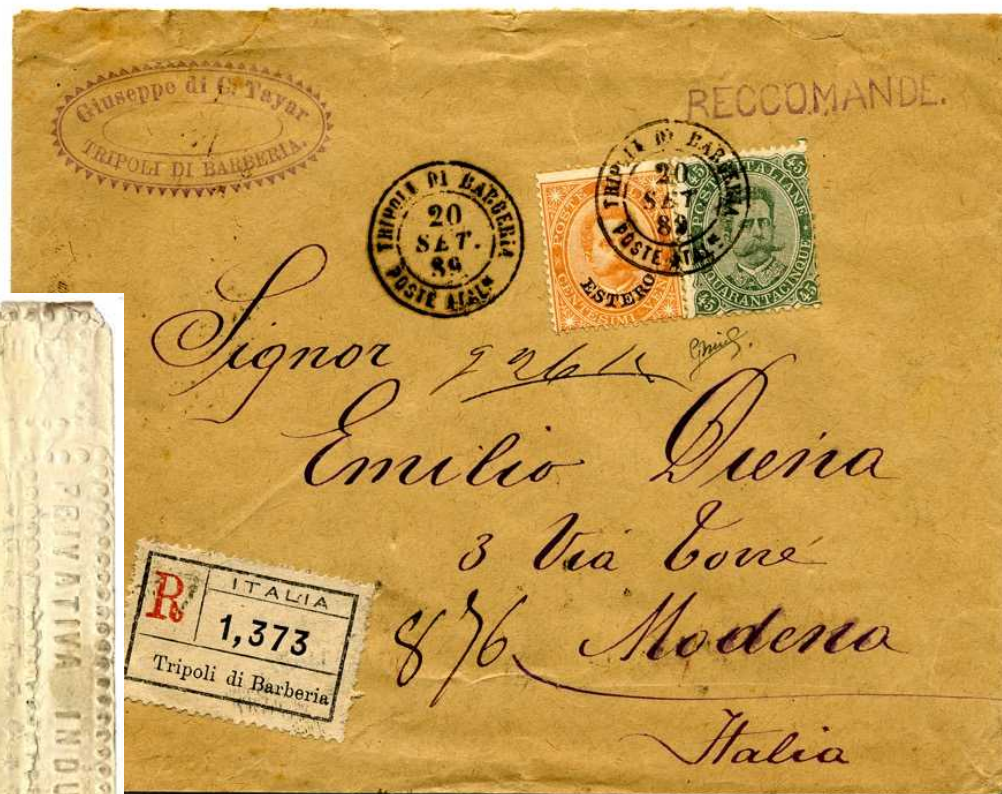 Giuseppe di G. Tayar
TRIPOLI DI BARBERIA.
RECCOMANDE.
TRIPOLI DI BARBERIA
20
SET.
89
POSTE ITALNE
TRIPOLI DI BARBERIA
20
SET
89
POSTE ITALNE
POSTE
CENTESIMI
ESTERO
45 45
POSTE ITALIANE
QUARANTACINQUE
45 45
Signor
Emilio Diena
3 Via Torre
876 Modena
Italia
R
ITALIA
1,373
Tripoli di Barberia
PRIVATIVA INDU